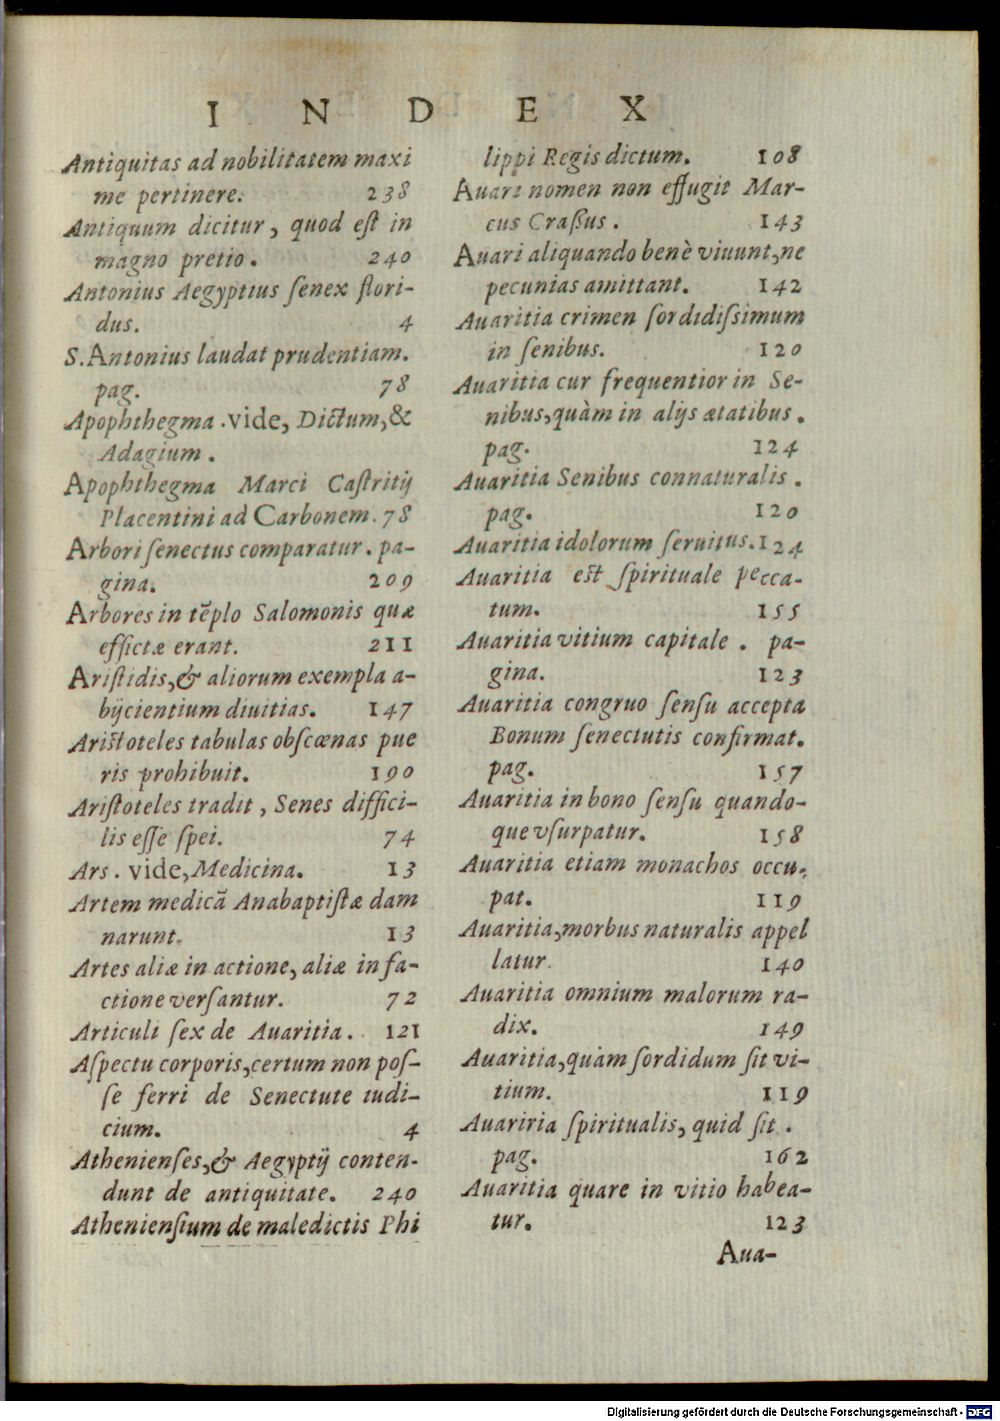 I N D E X
Antiquitas ad nobilitatem maxi
me pertinere. 238
Antiquum dicitur, quod eſt in
magno pretio. 240
Antonius Aegyptius ſenex flori-
dus. 4
S. Antonius laudat prudentiam.
pag. 78
Apophthegma .vide, Dictum,&
Adagium.
Apophthegma Marci Caſtritij
Placentini ad Carbonem. 78
Arbori ſenectus comparatur. pa-
gina. 209
Arbores in tẽplo Salomonis quæ
effictæ erant. 211
Ariſtidis,& aliorum exempla a-
bijcientium diuitias. 147
Ariſtoteles tabulas obſcœnas pue
ris prohibuit. 190
Ariſtoteles tradit, Senes diffici-
lis eſſe ſpei. 74
Ars. vide, Medicina. 13
Artem medicã Anabaptiſtæ dam
narunt. 13
Artes aliæ in actione, aliæ in fa-
ctione verſantur. 72
Articuli ſex de Auaritia. 121
Aſpectu corporis,certum non poſ-
ſe ferri de Senectute iudi-
cium. 4
Athenienſes,& Aegyptij conten-
dunt de antiquitate. 240
Athenienſium de maledictis Phi
lippi Regis dictum. 108
Auari nomen non effugit Mar-
cus Craßus. 143
Auari aliquando benè viuunt,ne
pecunias amittant. 142
Auaritia crimen ſordidiſsimum
in ſenibus. 120
Auaritia cur frequentior in Se-
nibus,quàm in alijs ætatibus.
pag. 124
Auaritia Senibus connaturalis.
pag. 120
Auaritia idolorum ſeruitus. 124
Auaritia eſt ſpirituale pecca-
tum. 155
Auaritia vitium capitale. pa-
gina. 123
Auaritia congruo ſenſu accepta
Bonum ſenectutis confirmat.
pag. 157
Auaritia in bono ſenſu quando-
que vſurpatur. 158
Auaritia etiam monachos occu-
pat. 119
Auaritia,morbus naturalis appel
latur. 140
Auaritia omnium malorum ra-
dix. 149
Auaritia,quàm ſordidum ſit vi-
tium. 119
Auariria ſpiritualis, quid ſit.
pag. 162
Auaritia quare in vitio habea-
tur. 123
Aua-
Digitalisierung gefördert durch die Deutsche Forschungsgemeinschaft - DFG